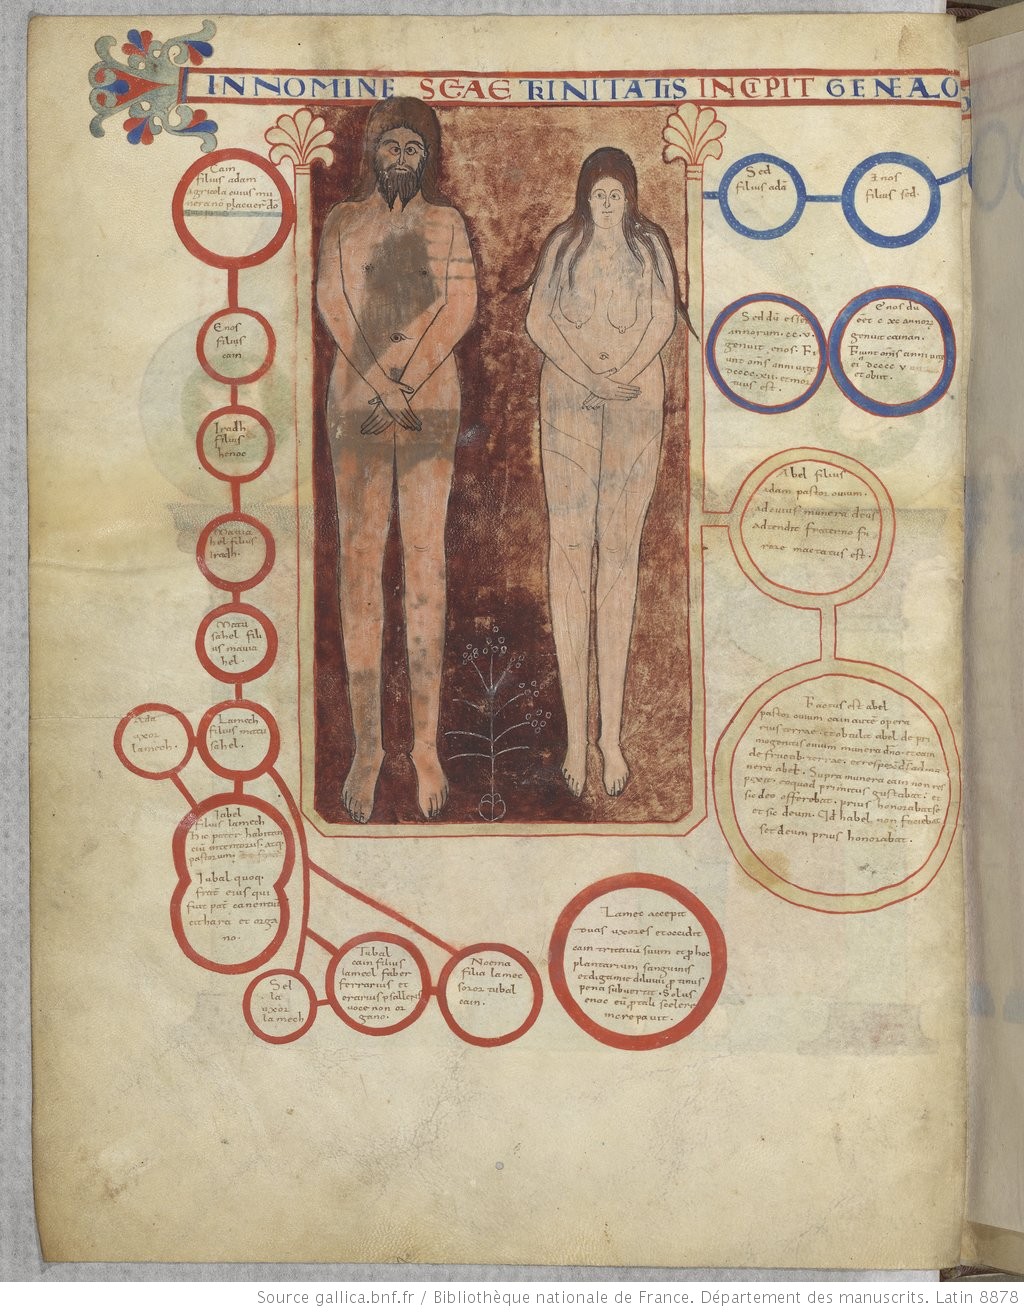 IN NOMINE SCAE TRINITATIS INCIPIT GENEALO
Cain
filius adam
agricola cuius mu
nera nō placuer dō
Enos
filius
cain
Iradh
filius
henoc
Mauia
hel filius
iradh.
Matu
sahel fili
us mauia
hel.
Lamech
filius matu
sahel.
Ada
uxor
lamech.
Iabel
filius lamech
hic pater habitan
pastorum
Iubal quoq.
frat̄ eius qui
fuit pat̄ canentiū
cithara et orga
no.
Sel
la
uxor
lamech
Tubal
cain filius
lamech faber
ferrarius et
erarius psallens
uoce non or
gano.
Noema
filia lamec
soror tubal
cain.
Lamec accepit
duas uxores et occidit
cain tritauū suum et p hoc
plantarium sanguinis
et digamie diluuii
penā subuertit. Solus
enoc eū p tali scelere
increpauit.
Sed
filius adā
Enos
filius sed.
Sed dū esset
annorum. cc. v.
genuit enos. Fi
unt om̄s anni uite
dcccc. xii. et mor
tuus est.
Enos dū
eēt c xc annorū
genuit cainan.
Fiunt om̄s anni uite
ei dcccc v
et obiit.
Abel filius
adam pastor ouium.
ad cuius munera deus
adtendit fraterno fu
rore mactatus est.
Factus est abel
pastor ouium cain autē opera
rius terrae. et obtulit abel de pri
mogenitis ouium munera dn̄o. et cain
de fructib. terrae. et respex dn̄s ad mu
nera abel. Supra munera cain non res
pexit quod primitus gustabat. et
sic deo offerebat. prius honorabat se
et sic deum. Id habel non faciebat
set deum prius honorabat.
Source gallica.bnf.fr / Bibliothèque nationale de France. Département des manuscrits. Latin 8878